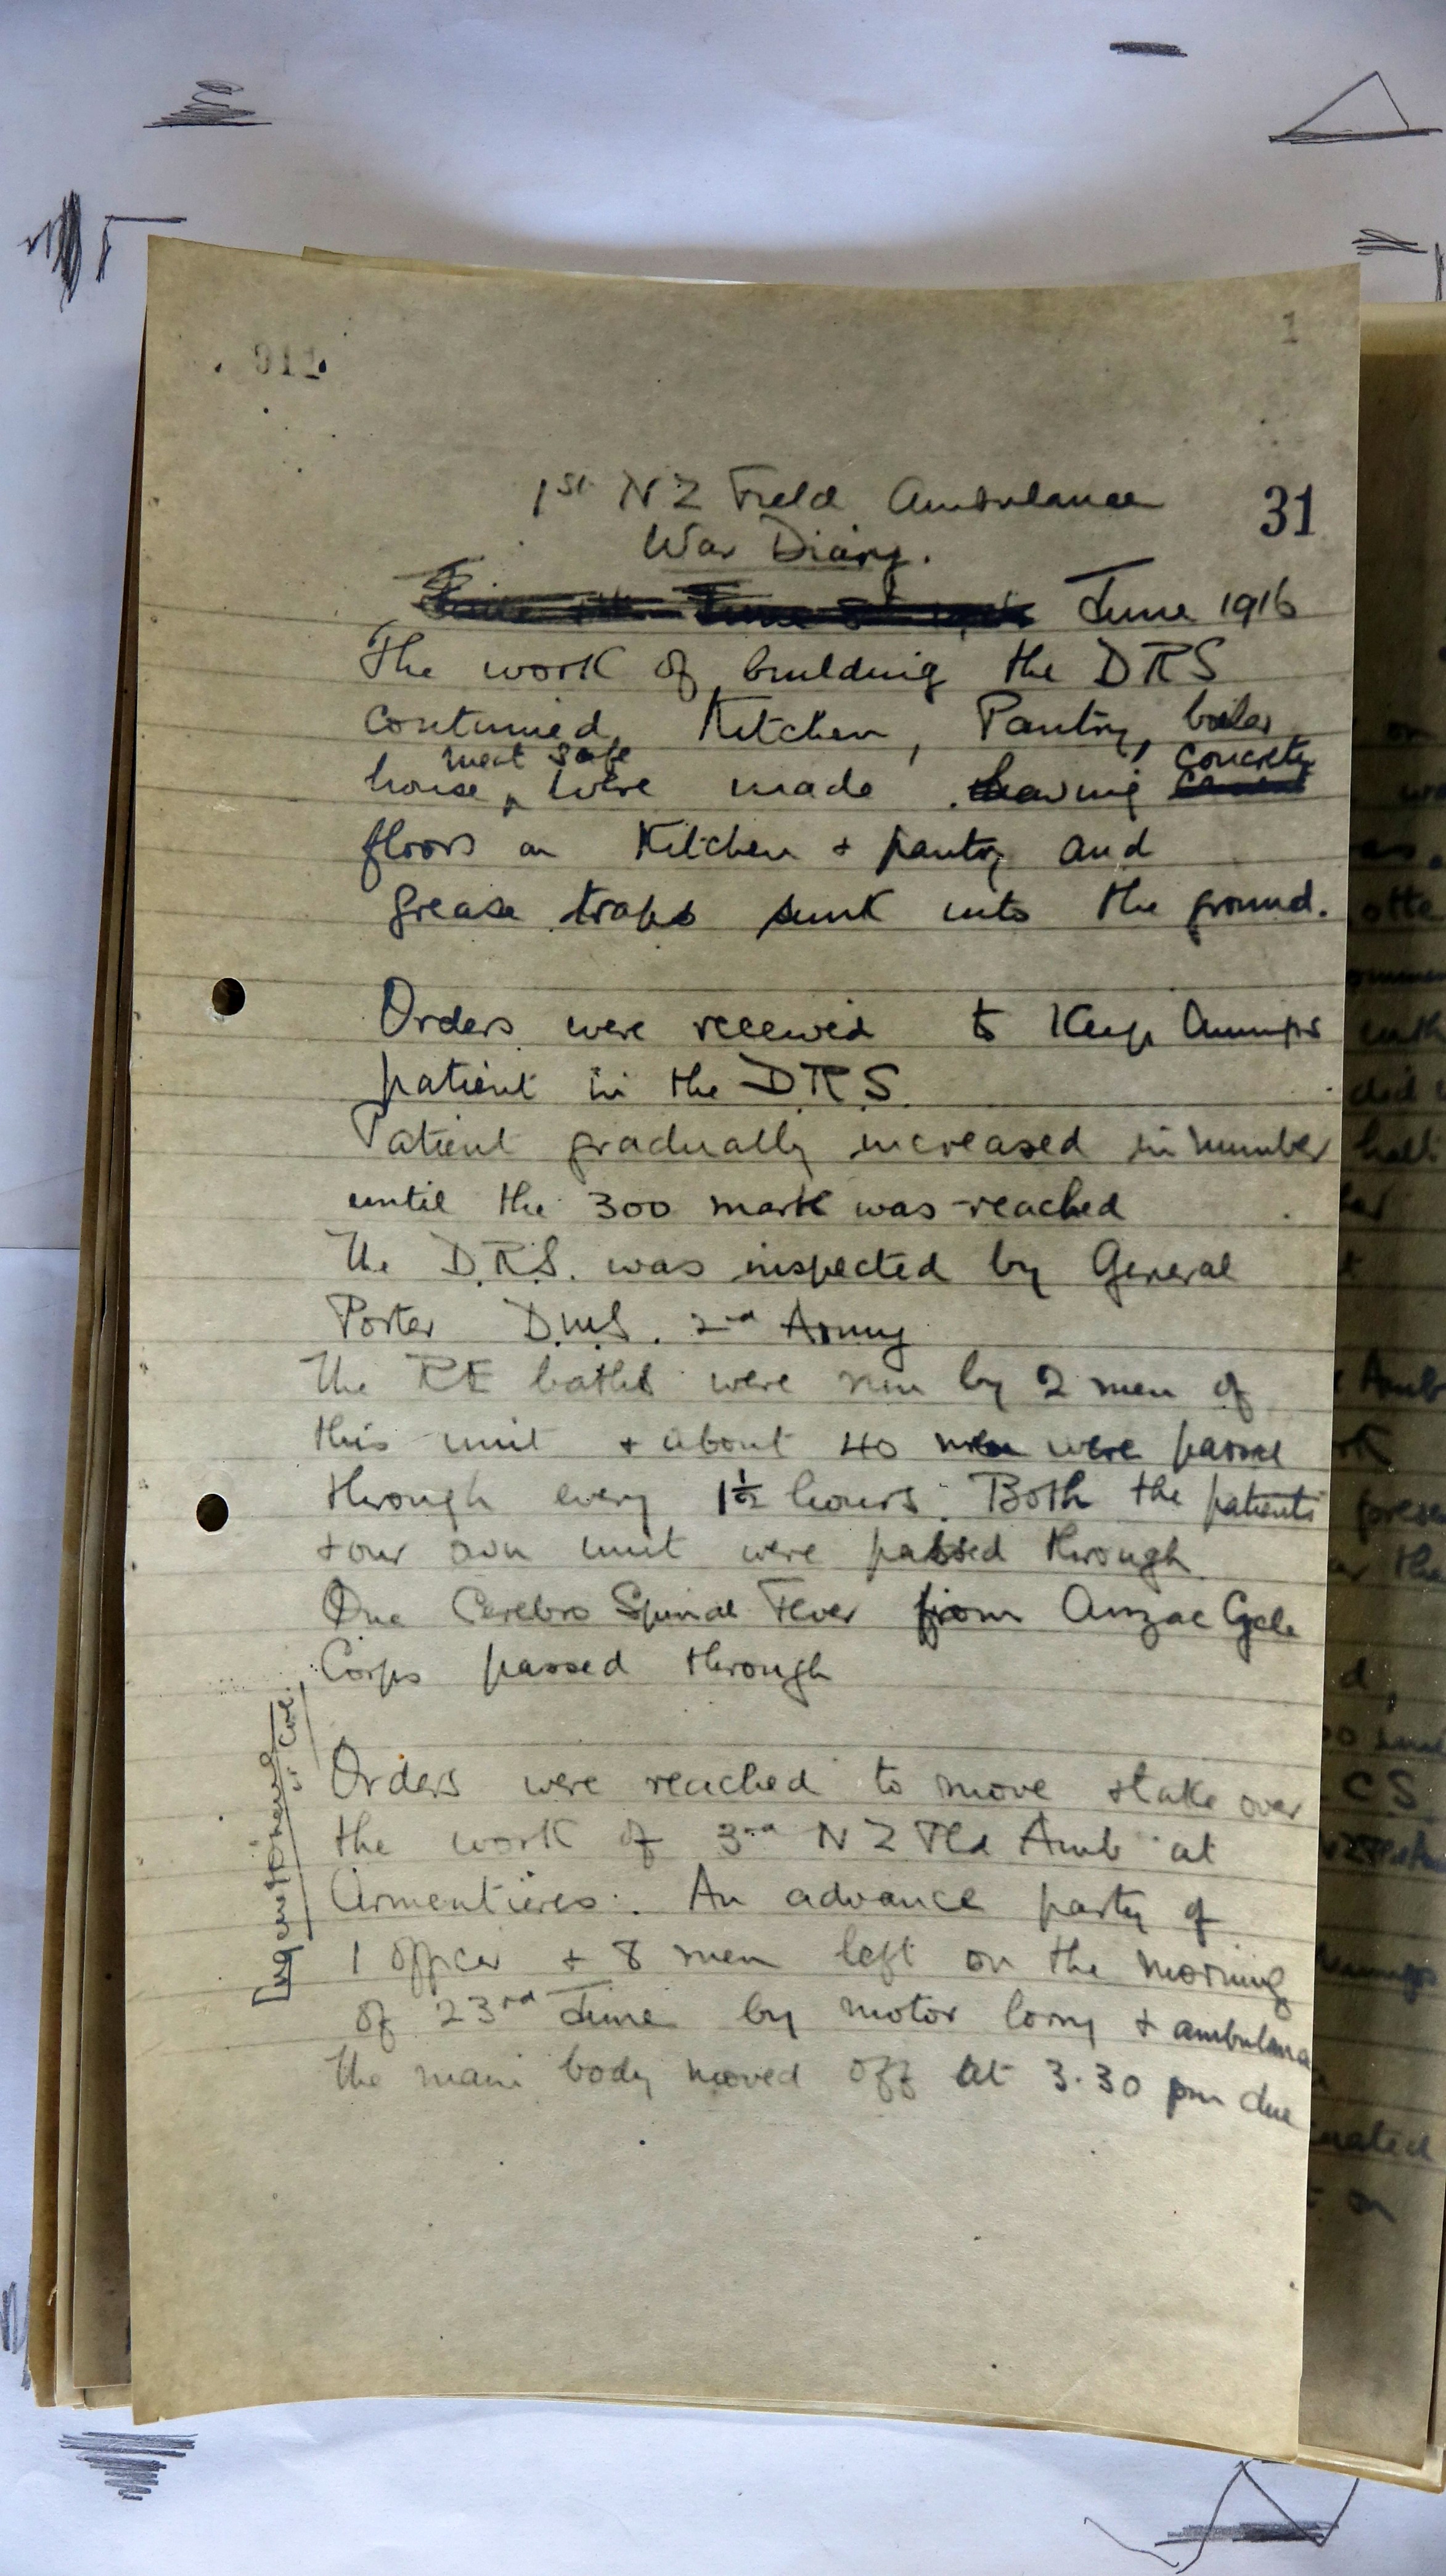 1
31
1st NZ Field Ambulance
War Diary.
June 1916
The work of building the DRS
continued, Kitchen, Pantry, boiler
meat safe concrete
house, were made having
floors in Kitchen + pantry and
grease traps sunk into the ground.
Orders were received to Keep mumps
patient in the D.R.S.
Patient gradually increased in number
until the 300 mark was reached
The D.R.S. was inspected by General
Porter D.M.S. 2nd Army
The RE baths were run by 2 men of
this unit + about 40 men were passed
through every 1½ hours. Both the patients
+ our own unit were passed through
One Cerebro Spinal Fever from Anzac Cycle
Corps passed through
Orders were reached to move + take over
the work of 3rd NZ Fld Amb at
Armentieres. An advance party of
1 officer + 8 men left on the morning
of 23rd June by motor lorry + ambulance
The main body moved off at 3.30 pm due